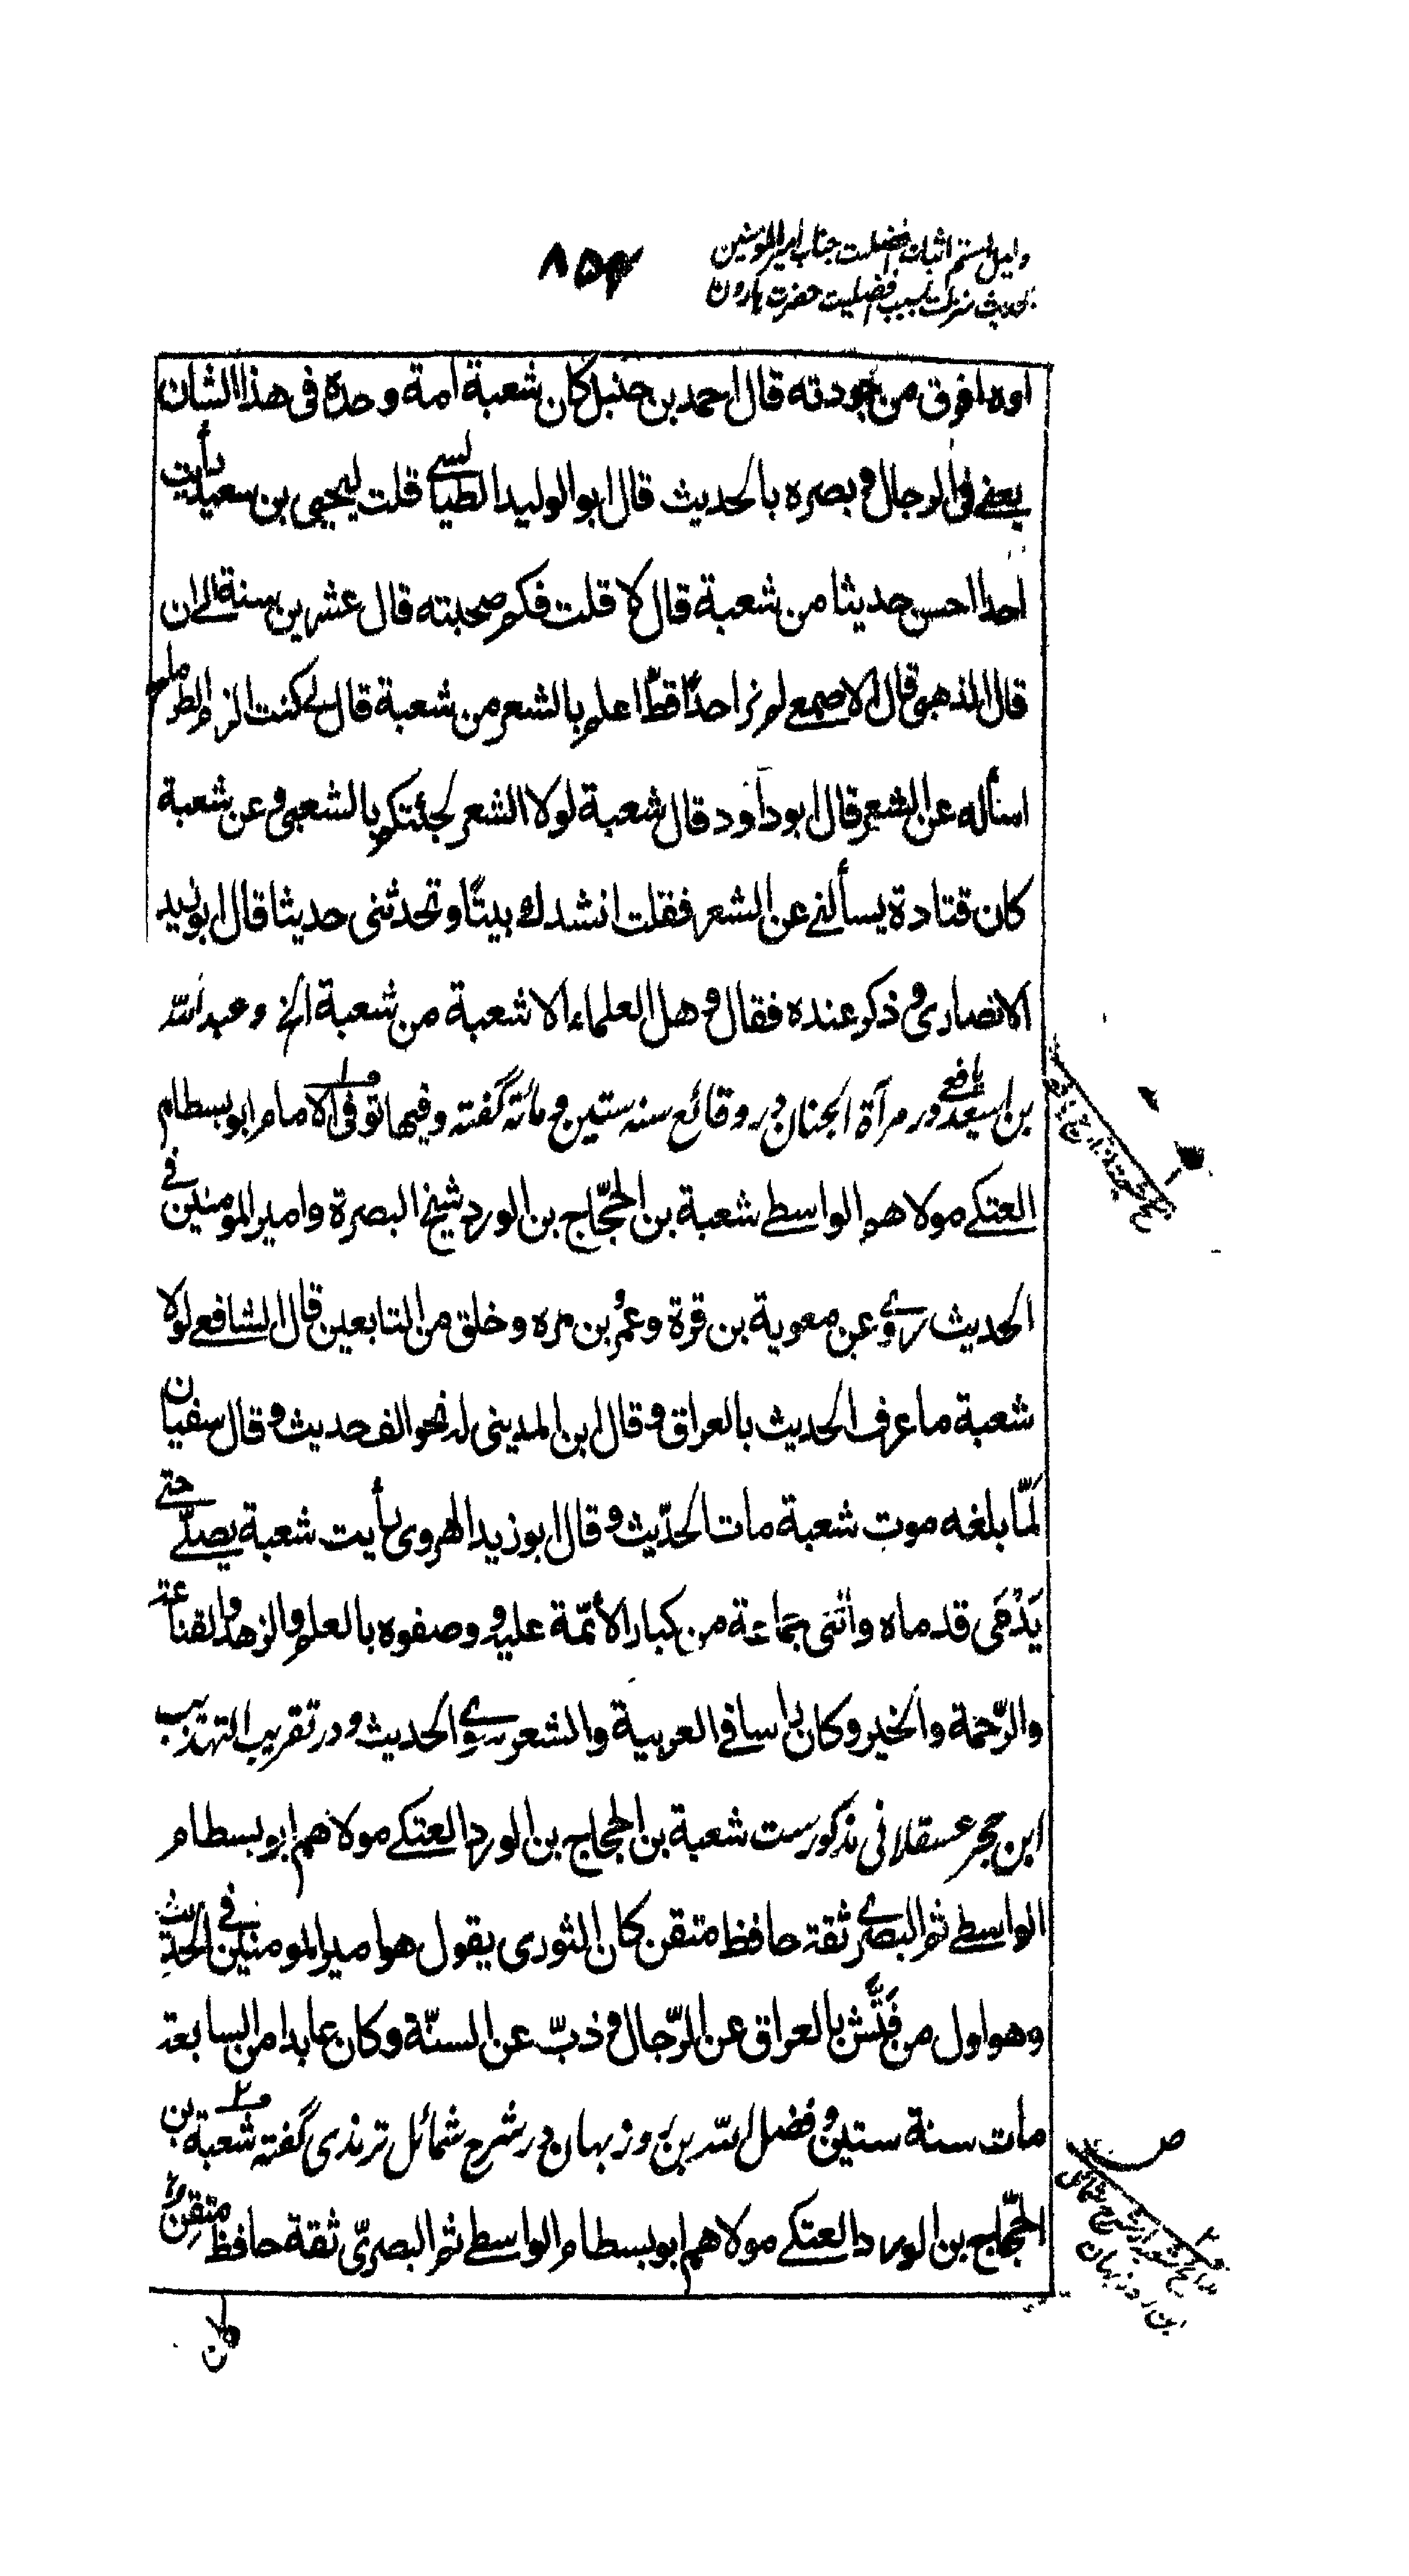 دلیل ششم اثبات افضلیت جناب امیرالمومنین
بحدیث منزلت بسبب افضلیت حضرت هارون
۸۵۴
اوه افوق من جودته قال احمد بن حنبل كان شعبة امة وحده فى هذا الشان
يعنے فى الرجال و بصره بالحديث قال ابو الوليد الطيالسے قلت ليحيى بن سعيد رأيت
احدا احسن حديثا من شعبة قال لا قلت فكم صحبته قال عشرين سنة الے ان
قال الذهبى قال الاصمعے لم نر احدًا قطّ اعلم بالشعر من شعبة قال لے كنت الزم الطرماح
اسأله عن الشعر قال ابو داود قال شعبة لولا الشعر لجئتكم بالشعبى و عن شعبة
كان قتادة يسألنے عن الشعر فقلت انشدك بيتًا و تحدثنى حديثا قال ابو زيد
الانصارى و ذكر عنده فقال و هل العلماء الا شعبة من شعبة الخ و عبد الله
بن اسعد یافعے در مرآة الجنان در وقائع سنه ستين و مائة گفته و فيها توفى الامام ابو بسطام
العتكے مولاهم الواسطے شعبة بن الحجّاج بن الورد شيخ البصرة و امير المومنين فے
الحديث روے عن معوية بن قرة و عمرو بن مره و خلق من التابعين قال الشافعے لولا
شعبة ما عرف الحديث بالعراق و قال ابن المدينى له نحو الف حديث و قال سفيان
لمّا بلغه موت شعبة مات الحديث و قال ابو زيد الهروى رأيت شعبة يصلّے حتے
يَدْمَى قدماه و أثنى جماعة من كبار الأئمّة عليه و وصفوه بالعلم و الزهد و القناعة
و الرّحمة و الخير و كان رأسا فے العربية و الشعر سوے الحديث و در تقريب التهذيب
ابن حجر عسقلانی مذکورست شعبة بن الحجاج بن الورد العتكے مولاهم ابو بسطام
الواسطے ثم البصرے ثقة حافظ متقن كان الثورى يقول هو امير المومنين فے الحديث
و هو اول من فَتَّش بالعراق عن الرّجال و ذبّ عن السنّة و كان عابدا من السابعة
مات سنة ستين و فضل الله بن روزبهان در شرح شمائل ترمذی گفته شعبة بن
الحجّاج بن الورد العتكے مولاهم ابو بسطام الواسطے ثم البصرىّ ثقة حافظ متقن
كان
ص
مدح شعبه از شرح شمائل
ابن روزبهان